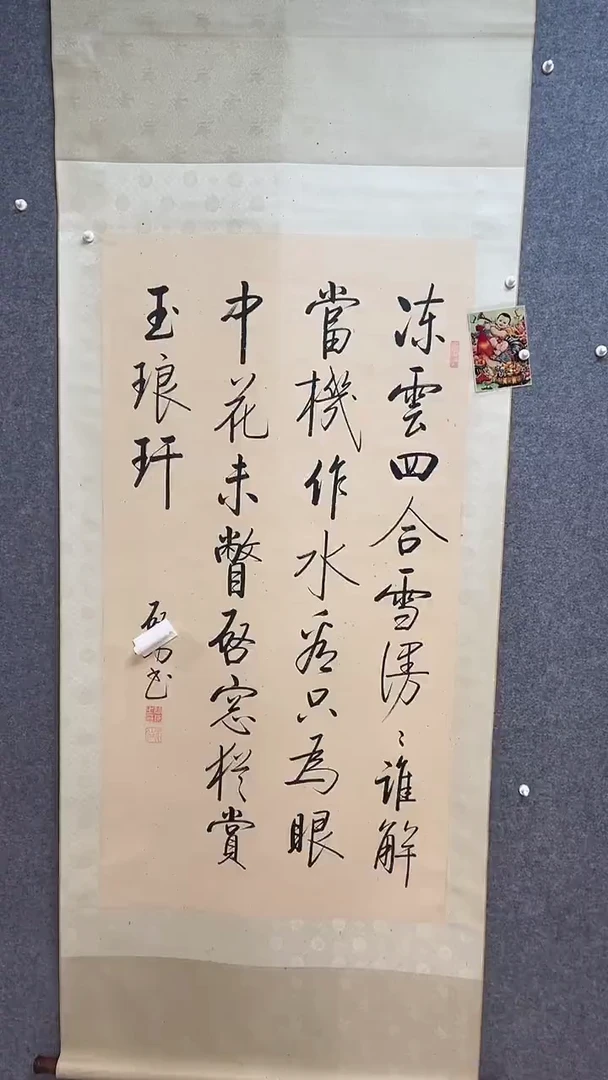 凍雲四合雪漫々誰解
當機作水看只為眼
中花未瞥啓窓猶賞
玉琅玕
书